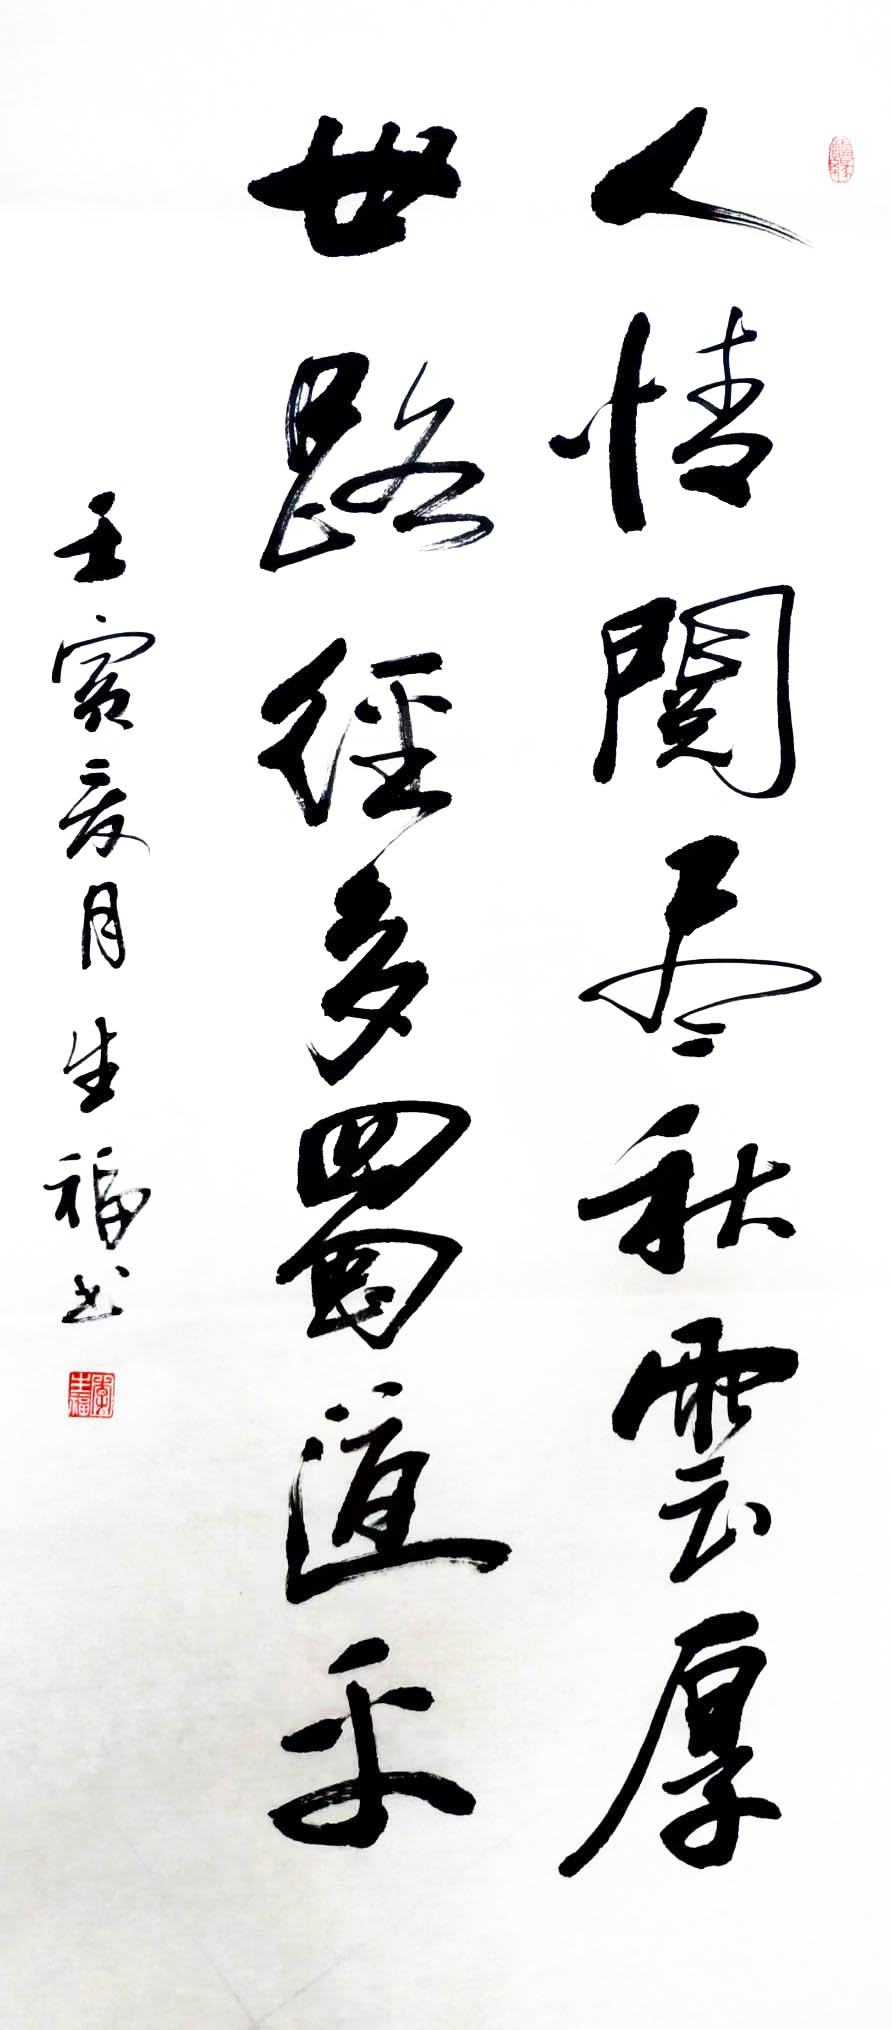 人情閱尽秋雲厚
世路經多蜀道平
壬寅亥月生福书